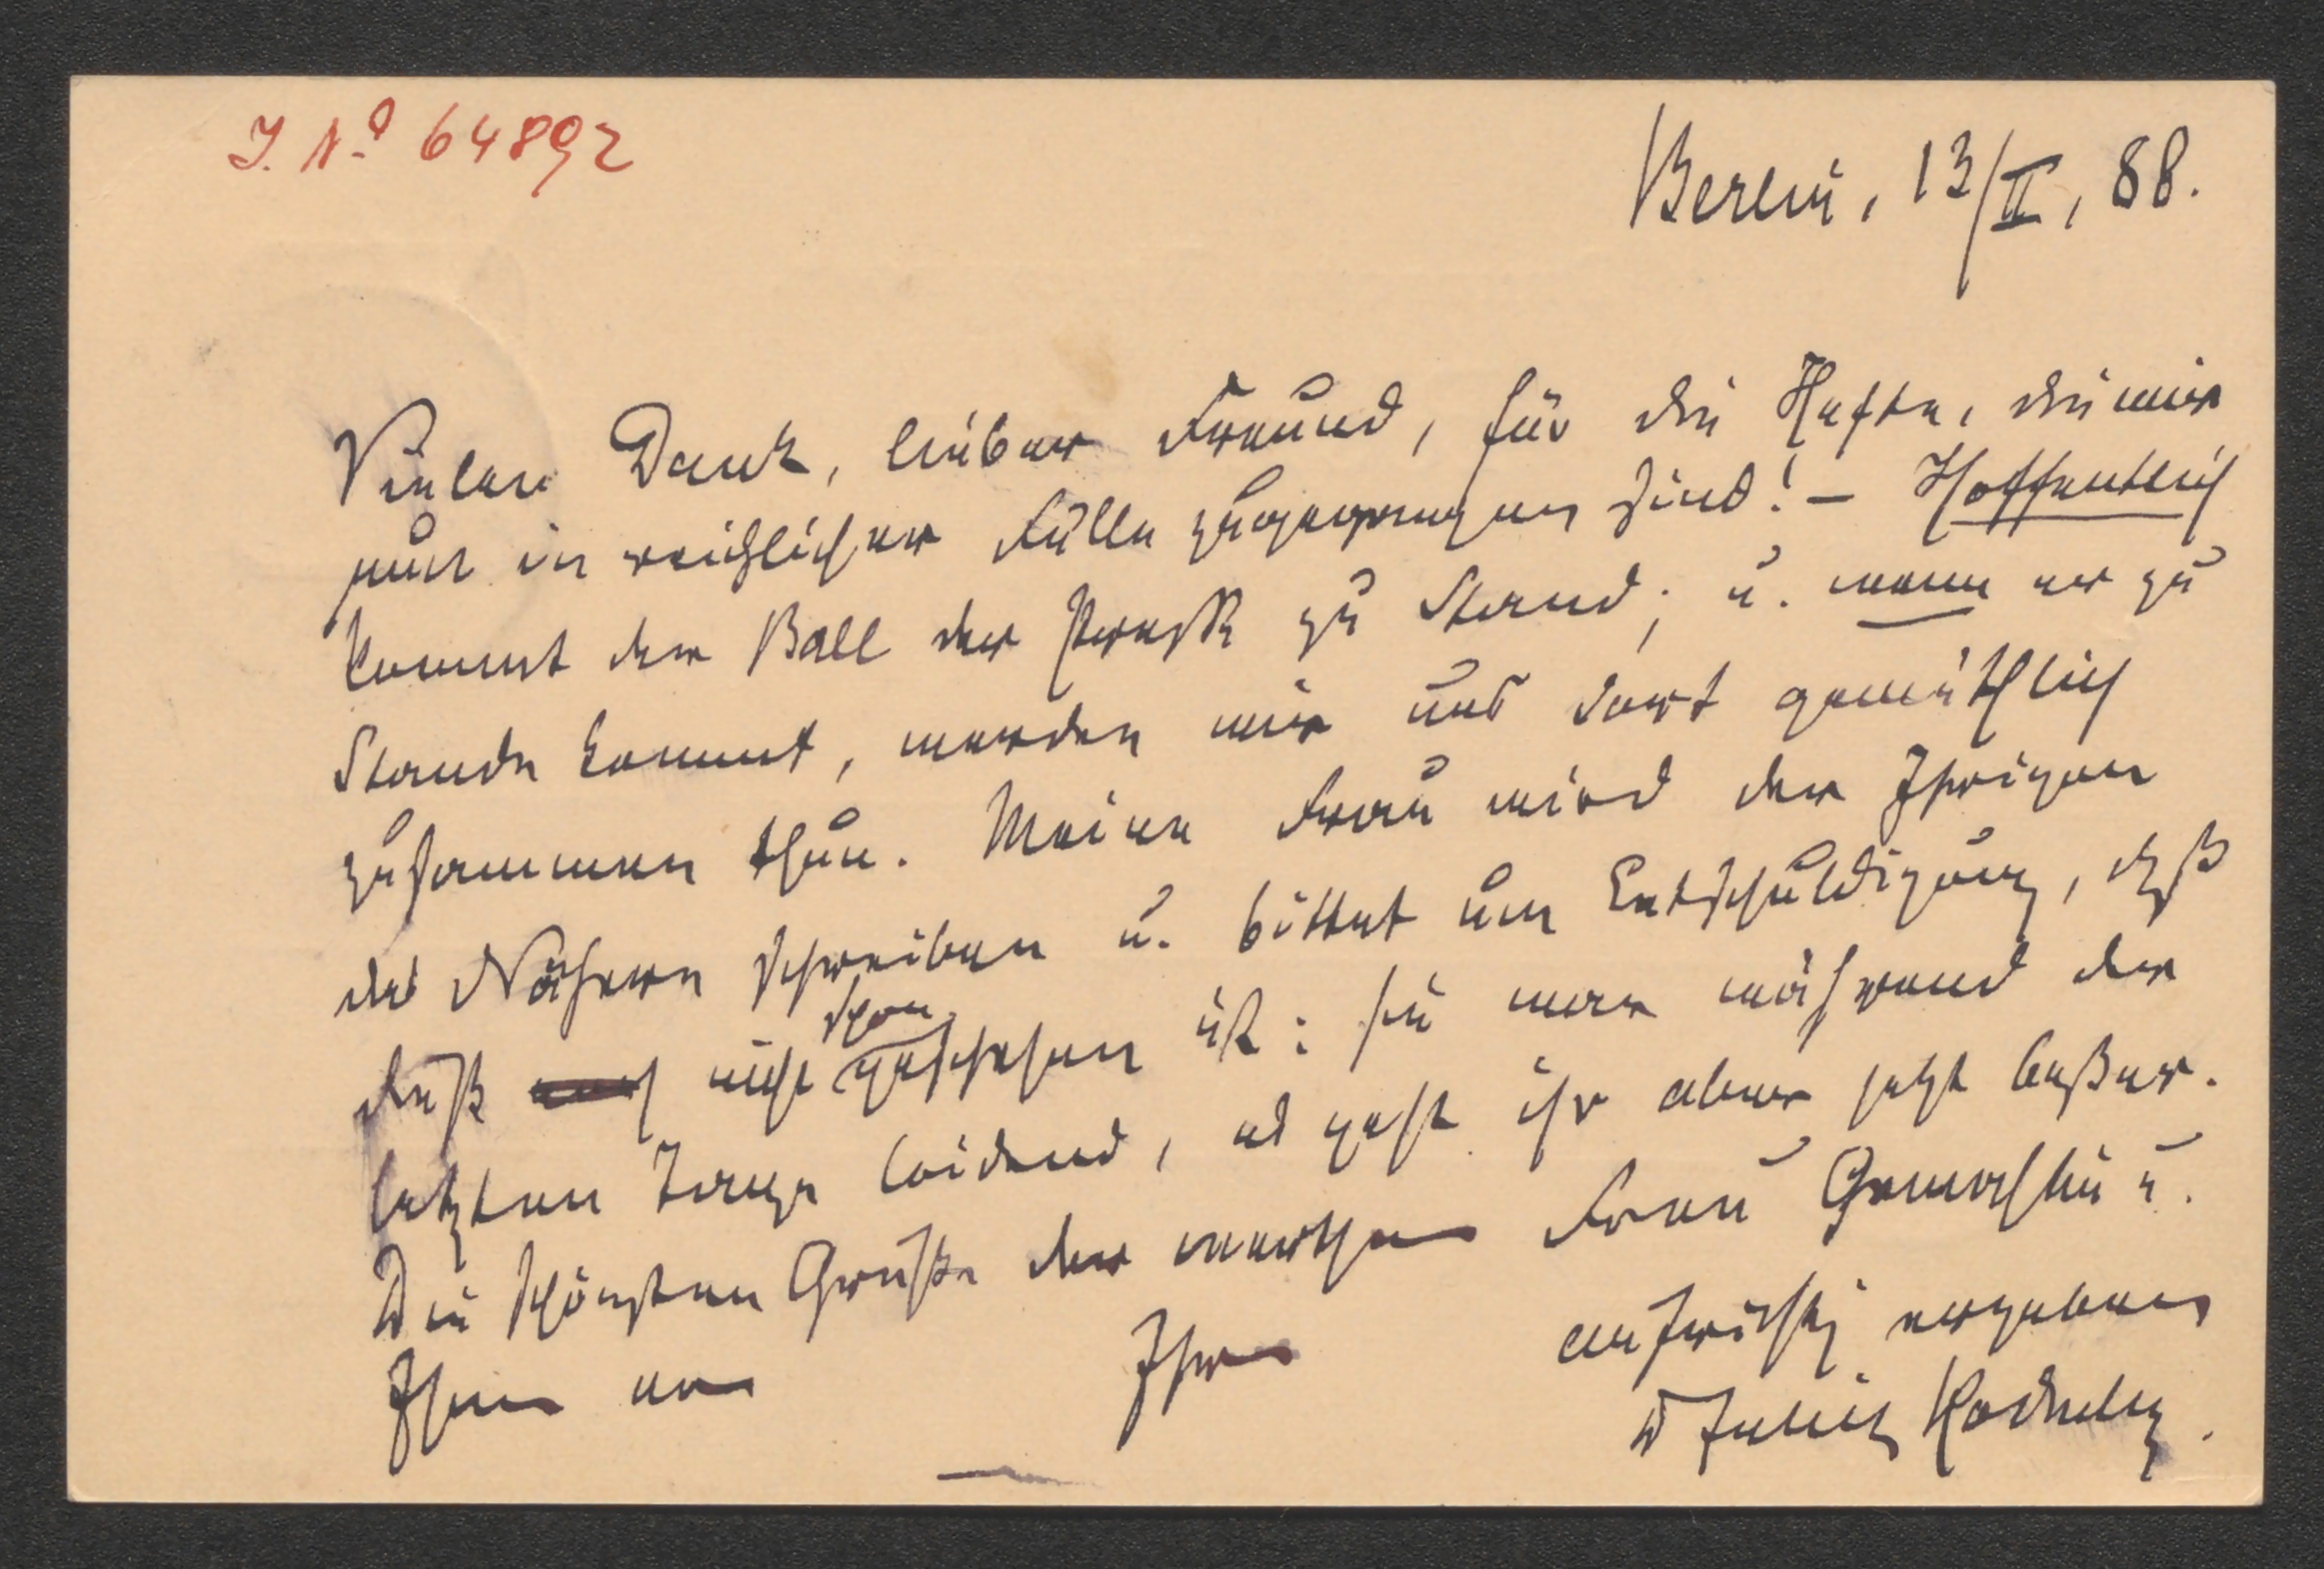 I. Nº 64892
Berlin, 13/II, 88.
Vielen Dank, lieber Freund, für die Hefte, die mir
nun in reichlicher Fülle zugegangen sind! – Hoffentlich
kommt der Ball der Presse zu Stand; u. wenn er zu
Stande kommt, werden wir uns dort gemüthlich
zusammen thun. Meine Frau wird der Ihrigen
des Nähern schreiben u. bittet um Entschuldigung, daß
dieß nicht schon geschehen ist: sie war während der
letzten Tage leidend, es geht ihr aber jetzt beßer.
Die schönsten Grüße der werthen Frau Gemahlin u.
Ihnen von Ihrem aufrichtig ergebenen
D Julius Rodenberg.